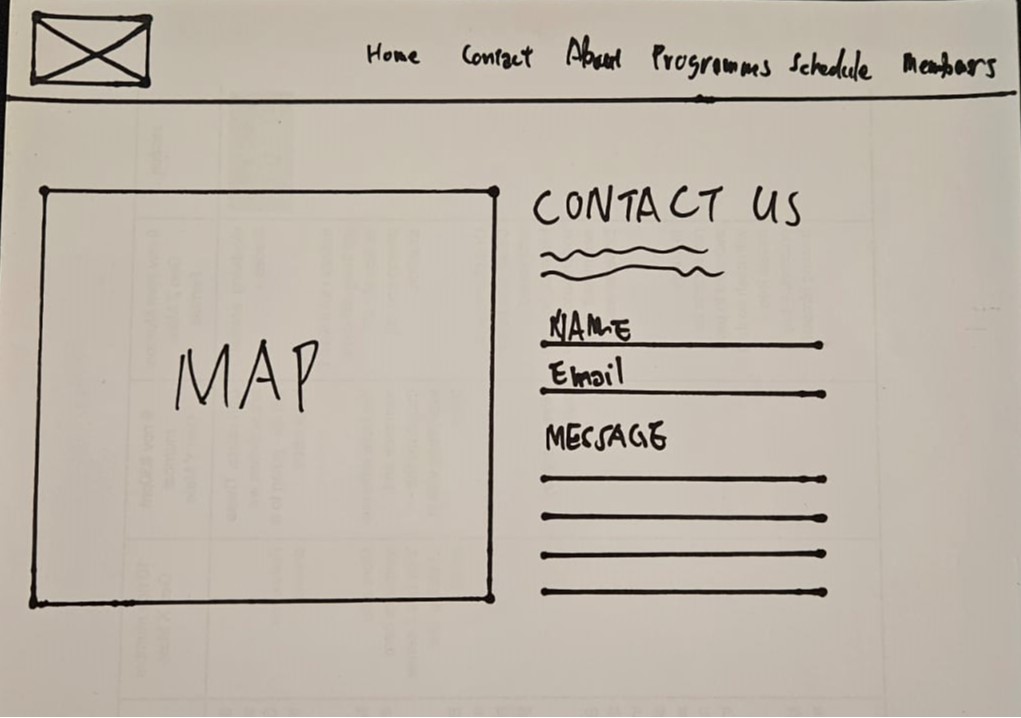 Home Contact About Programmes Schedule Members
CONTACT US
MAP
NAME
Email
MESSAGE